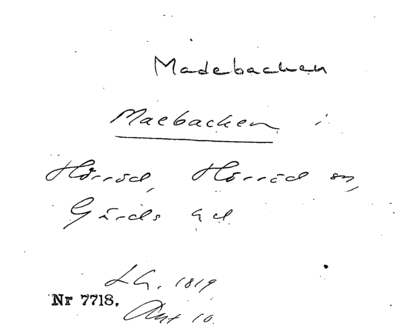 Madebacken
Maebacken i
Hörröd, Hörröd sn,
Gärds hd
LA. 1819
Nr 7718.
Akt 10